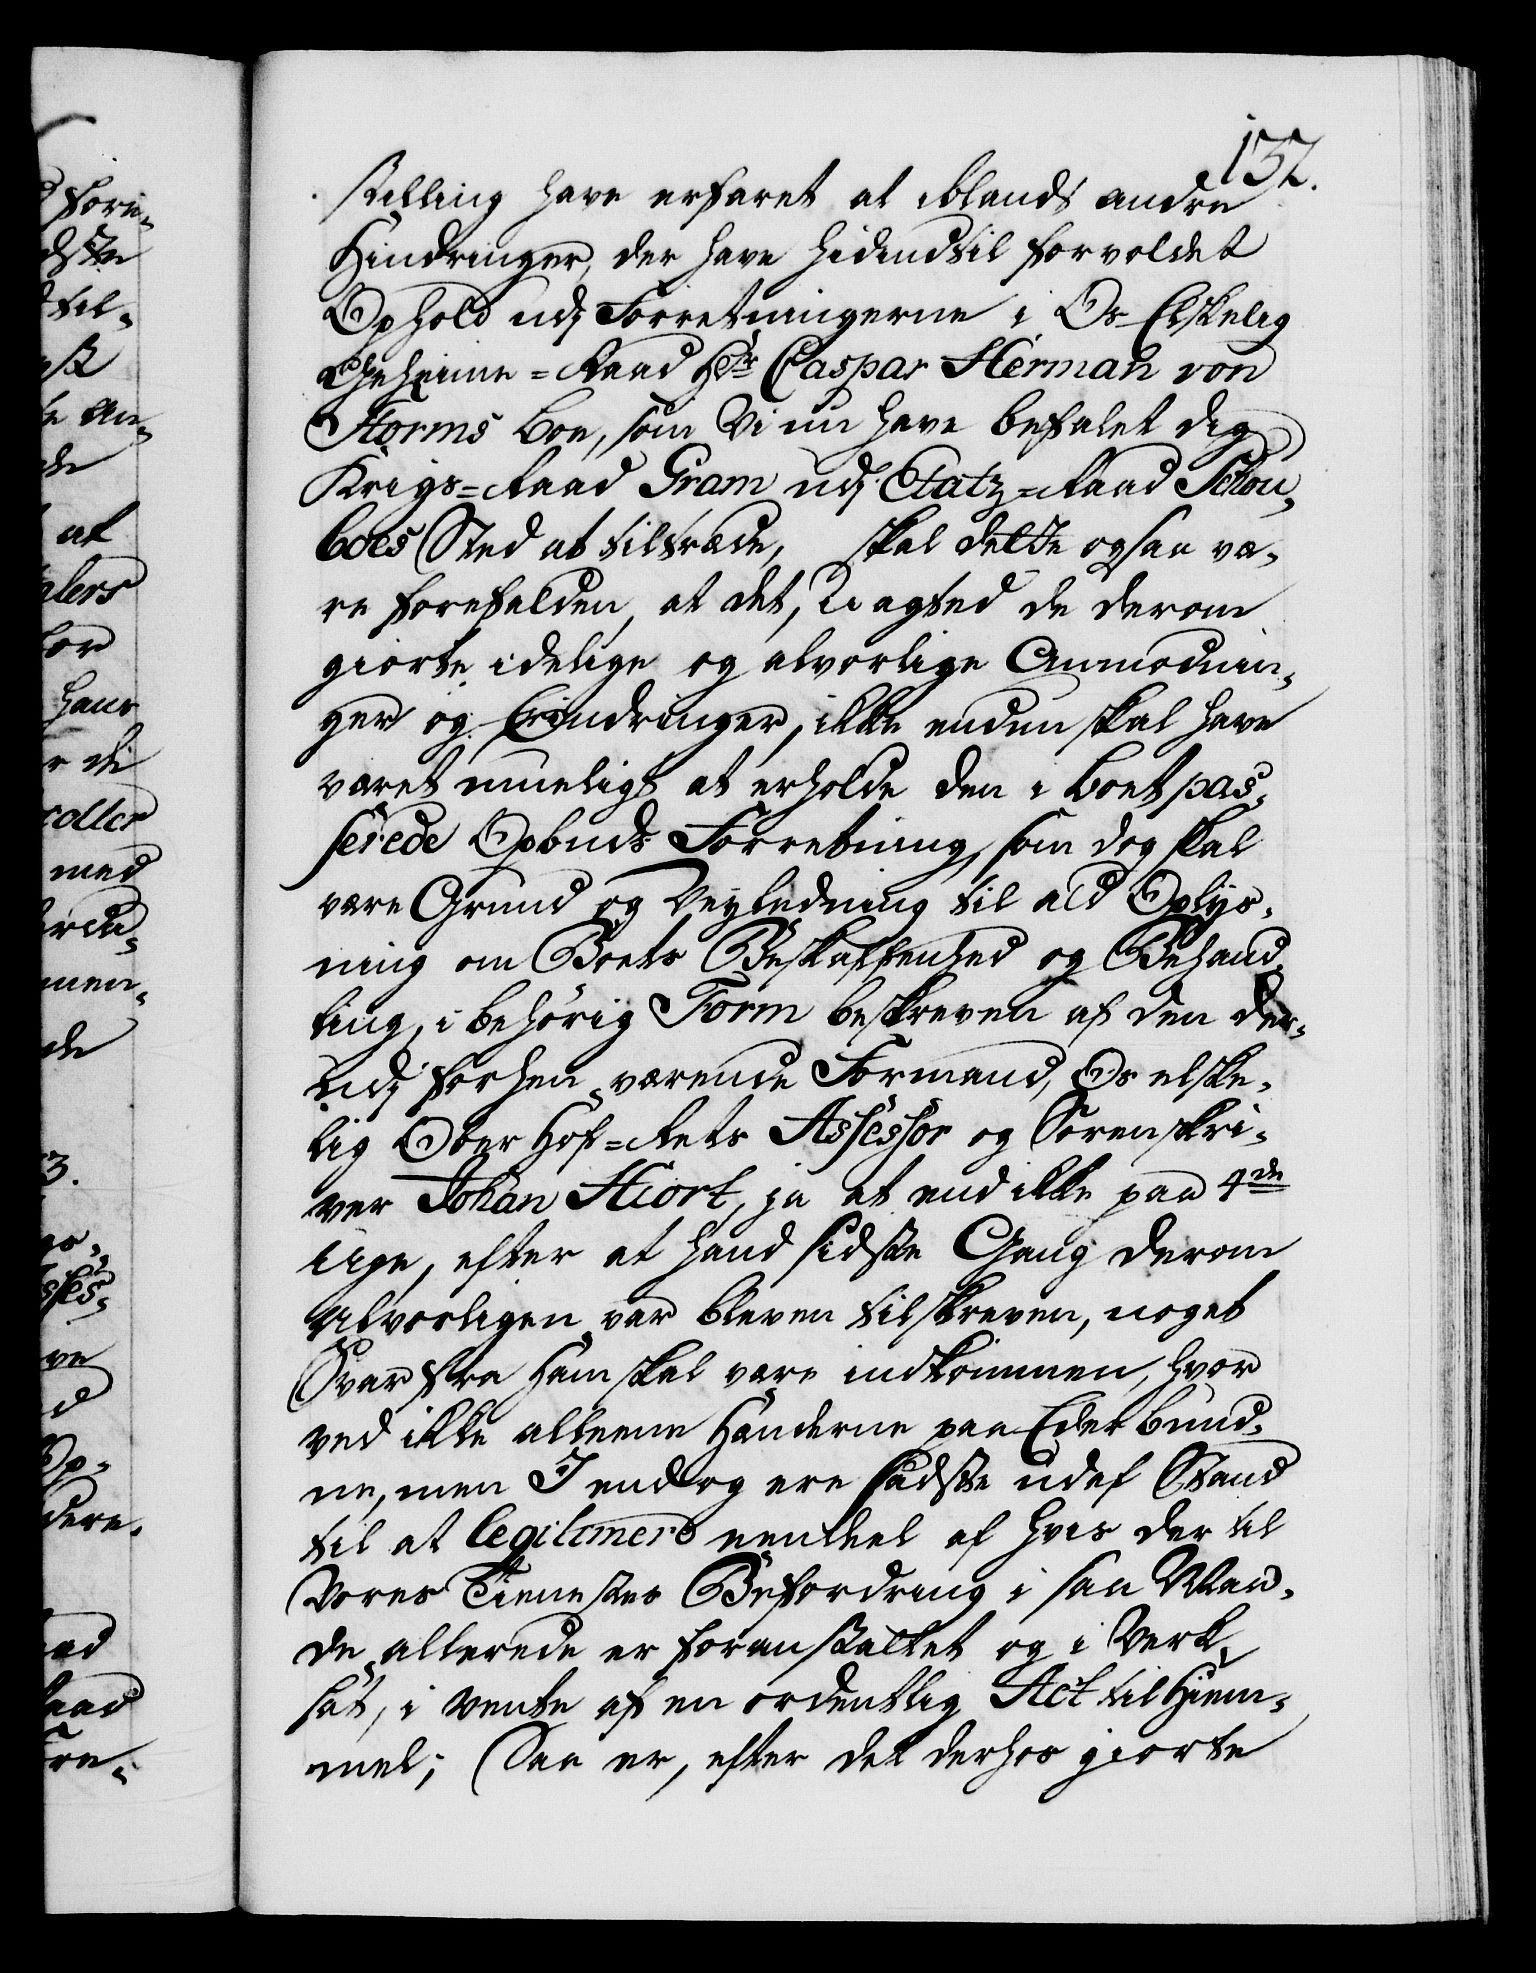 132.
stilling have erfaret at iblandt andre
Hindringer, der have hidindtil forvoldet
Ophold udj Forretningerne i Os Elskelig
Geheime=Raad Hr Caspar Herman von
Storms Boe, som Vi nu have befalet dig
Krigs=Raad Gram udj Etatz=Raad Schou„
boes Sted at tiltræde, skal dette ogsaa væ„
re forefalden, at det, Uagted de derom
giorte idelige og alvorlige Anmodnin„
ger og Erindringer, ikke enden skal have
været mueligt at erholde den i Boet pas„
serede Opbuds Forretning, som dog skal
være Grund og Veyledning til ald Oplys„
ning om Boets Beskaffenhed og Behand„
ling, i behørig Form beskreven af den der„
udj forhen værende Formand, Os elske„
lig Ober Hof=Rets Assessor og Sorenskri„
ver Johan Hiort, ja at end ikke paa 4de
Uge, efter at hand sidste Gang derom
Alvorligen var bleven tilskreven, noget
Svar fra ham skal være indkommen, hvor
ved ikke alleene Hænderne paa Eder bund„
ne, men I endog ere sadste udaf Stand
til at legitimere eendeel af hvis der til
Vores Tienestes Befordring i saa Maa„
de allerede er foranstaltet og i Verk„
sat, i vente af en ordentlig Act til Hiem„
mel; Saa er, efter det derhos giorte